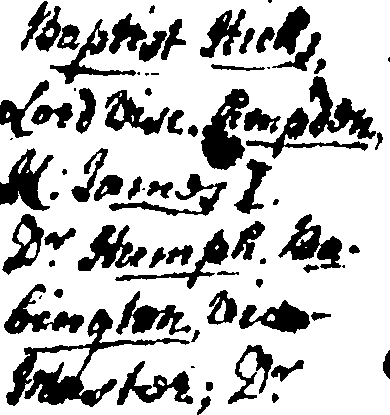 Baptist Hicks,
Lord Visc. Campden,
K: James I.
Dr Humph. Ba-
bington, Vice-
Master; Dr